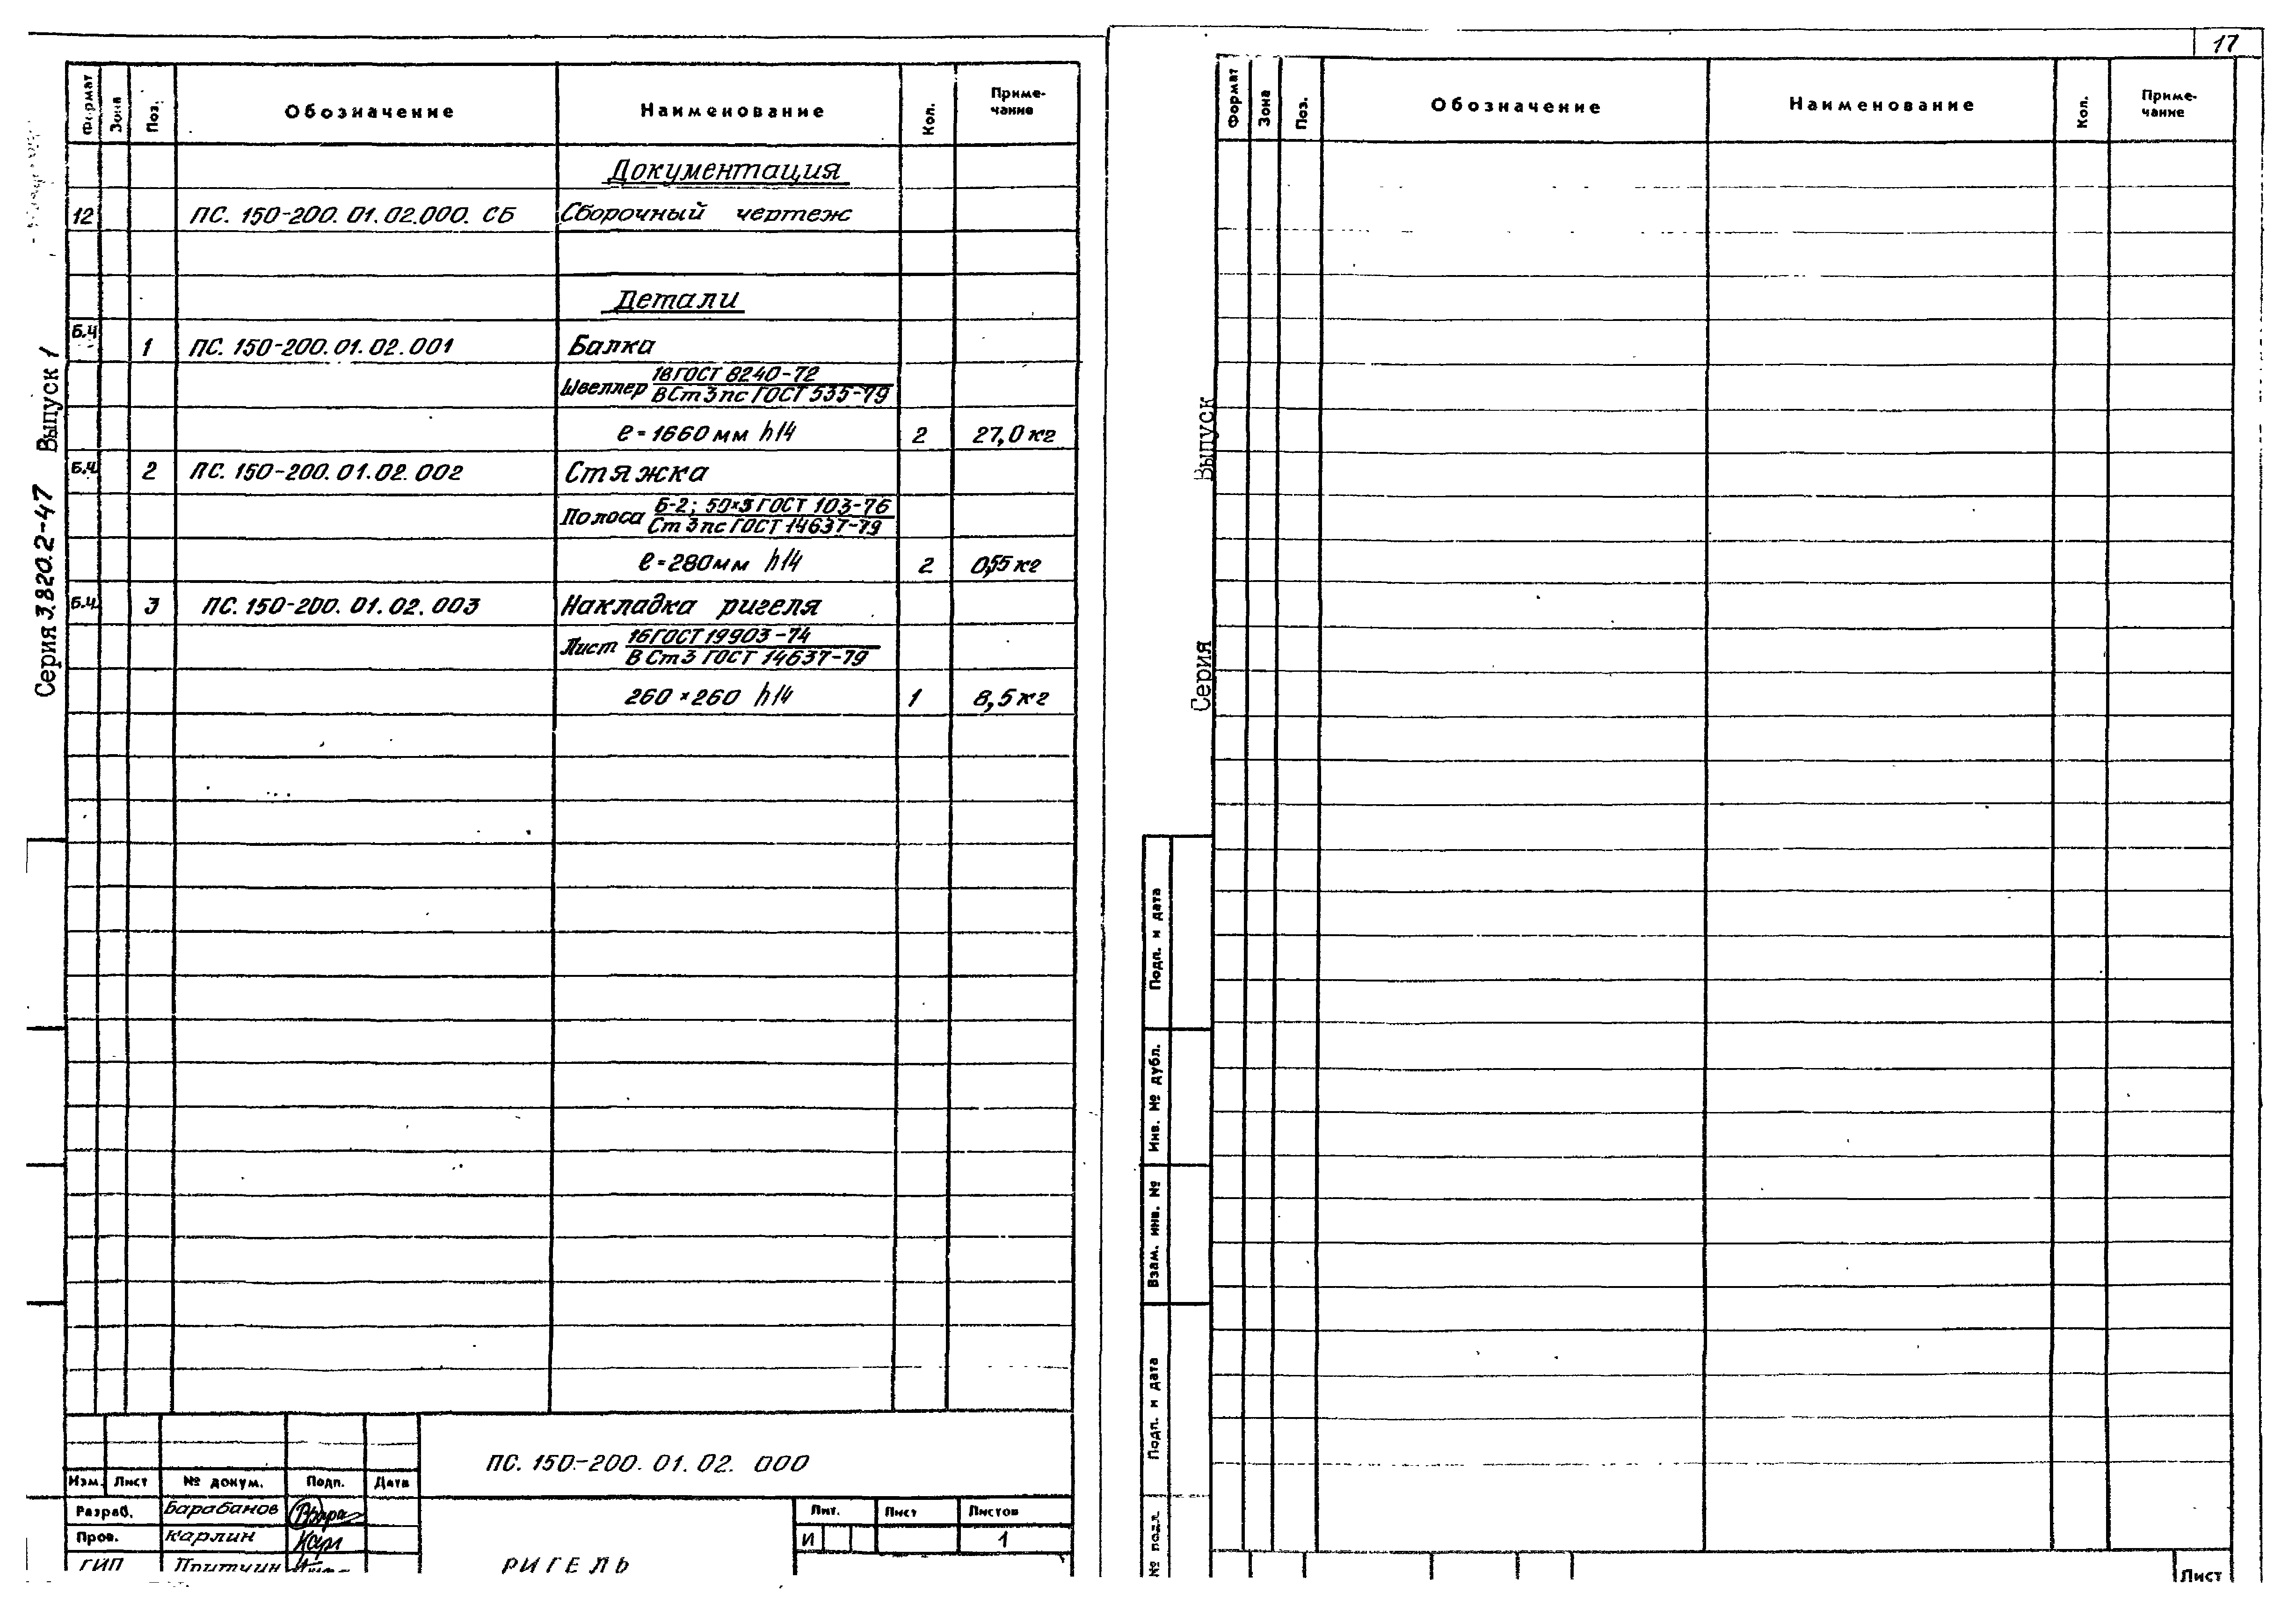 17
Серия 3.820.2-47 Выпуск 1
Формат Зона Поз. Обозначение Наименование Кол. Приме-
чание
Документация
12 ПС. 150-200. 01. 02.000. СБ Сборочный чертеж
Детали
Б.Ч 1 ПС. 150-200. 01. 02. 001 Балка
Швеллер 18 ГОСТ 8240-72
В Ст 3 пс ГОСТ 535-79
ℓ = 1660 мм h14 2 27,0 кг
Б.Ч. 2 ПС. 150-200. 01. 02. 002 Стяжка
Полоса Б-2; 50×5 ГОСТ 103-76
Ст 3 пс ГОСТ 14637-79
ℓ = 280 мм h14 2 0,55 кг
Б.Ч. 3 ПС. 150-200. 01. 02. 003 Накладка ригеля
Лист 16 ГОСТ 19903-74
В Ст 3 ГОСТ 14637-79
260 × 260 h14 1 8,5 кг
ПС. 150-200. 01. 02. 000
Изм. Лист № докум. Подп. Дата
Разраб. Барабанов
Пров. Карлин
ГИП Притчин
РИГЕЛЬ
Лит. Лист Листов
И 1
Серия Выпуск
Формат Зона Поз. Обозначение Наименование Кол. Приме-
чание
Подп. и дата
Инв. № дубл.
Взам. инв. №
Подп. и дата
№ подл.
Лист